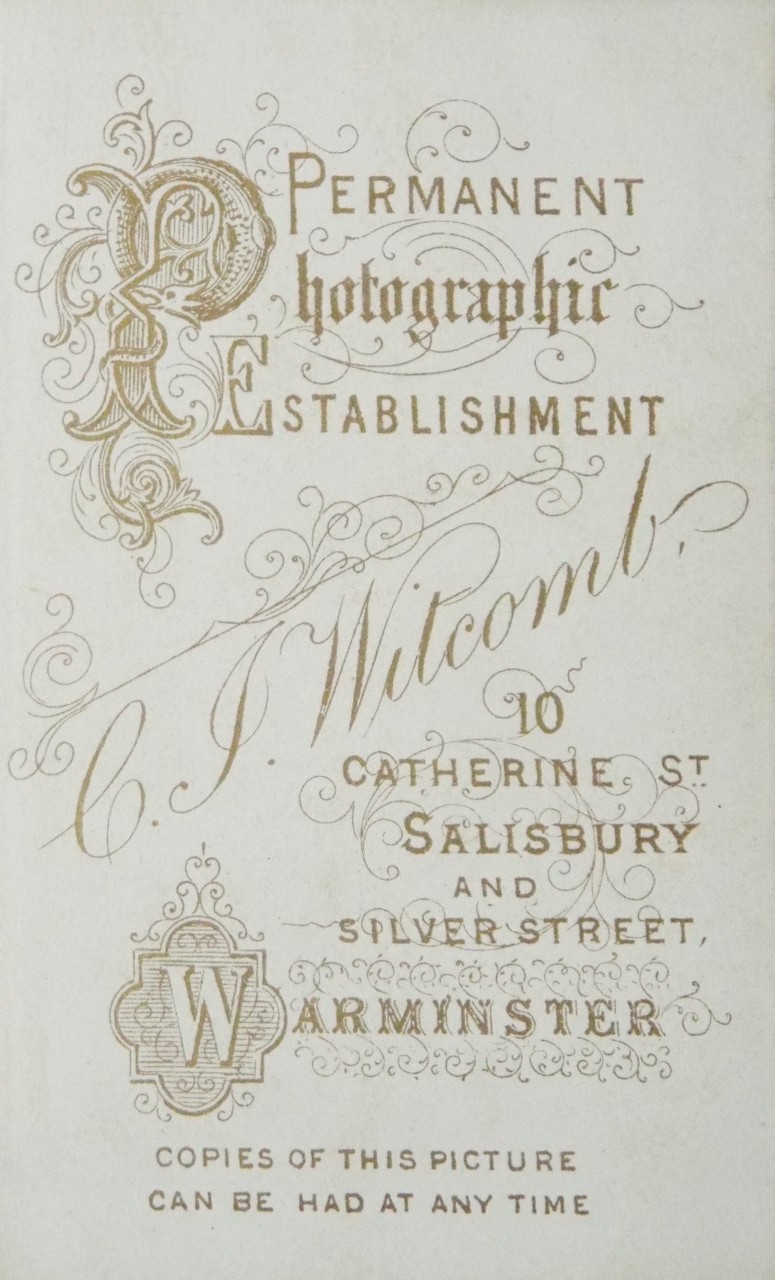 PERMANENT
Photographic
ESTABLISHMENT
C. J. Witcomb,
10
CATHERINE. ST.
SALISBURY
AND
SILVER STREET,
WARMINSTER
COPIES OF THIS PICTURE
CAN BE HAD AT ANY TIME